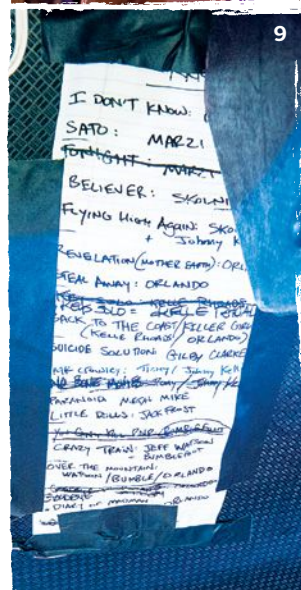 9
I DON'T KNOW:
SATO: MARZI
TONIGHT: MARZI
BELIEVER: SKOLNI
FLYING HIGH AGAIN: SKO
+ Johnny K
REVELATION (MOTHER EARTH): ORL
STEAL AWAY: ORLANDO
KEYS SOLO = KELLE
BACK TO THE COAST/KILLER GIRLS
(KELLE RHOADS/ORLANDO)
SUICIDE SOLUTION: GILBY CLARKE
MR CROWLEY: / Johnny Kell
NO BONE MOVIES
PARANOID MEGA MIKE
LITTLE DOLLS: JACK FROST
BUMBLEFOOT
CRAZY TRAIN: JEFF WATSON
+ BUMBLEFOOT
OVER THE MOUNTAIN:
WATSON/BUMBLE/ORLANDO
GOODBYE
DIARY OF MADMAN ORLANDO